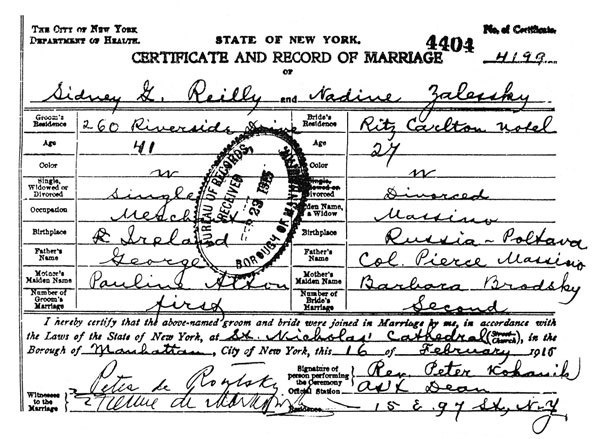 THE CITY OF NEW YORK
DEPARTMENT OF HEALTH.
STATE OF NEW YORK.
No. of Certificate
4404
CERTIFICATE AND RECORD OF MARRIAGE
4199
OF
Sidney G. Reilly and Nadine Zalessky
Groom's Residence 260 Riverside Drive Bride's Residence Ritz Carlton Hotel
Age 41 Age 27
Color W Color W
Single, Widowed or Divorced Single Single, Widowed or Divorced Divorced
Occupation Maiden Name, if a Widow Massino
Birthplace Ireland Birthplace Russia - Poltava
Father's Name George Father's Name Col. Pierce Massino
Mother's Maiden Name Pauline Mother's Maiden Name Barbara Brodsky
Number of Groom's Marriage first Number of Bride's Marriage Second
BUREAU OF RECORDS
RECEIVED
FEB 23 1915
BOROUGH OF MANHATTAN
I hereby certify that the above-named groom and bride were joined in Marriage by me, in accordance with
the Laws of the State of New York, at St. Nicholas' Cathedral (Street Church), in the
Borough of Manhattan, City of New York, this 16 of February 1915
Witnesses to the Marriage Peter de
Signature of person performing the Ceremony Rev. Peter Kohanik
Official Station Ass't Dean
Residence 15 E. 97 St., N.Y.